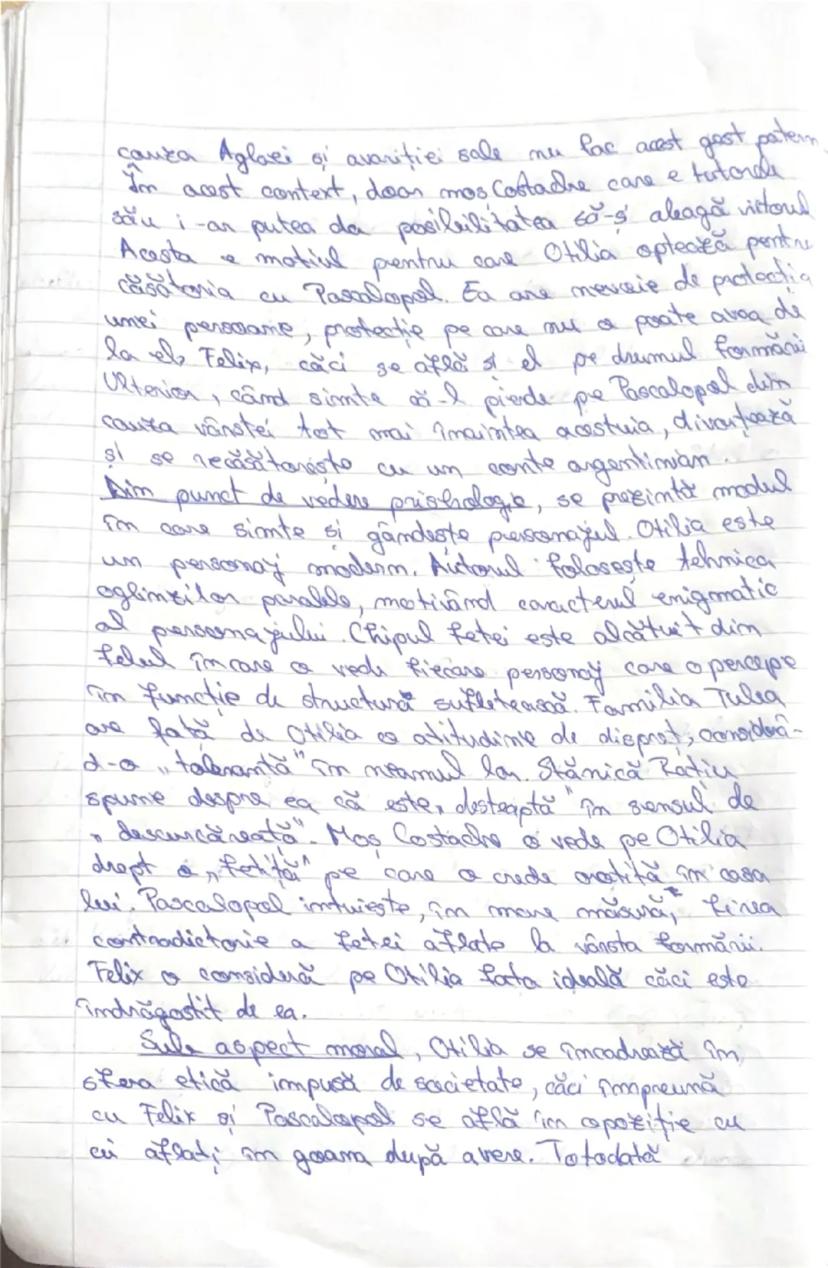 cauza Aglaei și avariției sale nu fac acest gest patern
În acest context, doar moș Costache care e tutorele
său i-ar putea da posibilitatea să-și aleagă viitorul
Acesta e motivul pentru care Otilia optează pentru
căsătoria cu Pascalopol. Ea are nevoie de protecția
unei persoane, protecție pe care nu o poate avea de
la el, Felix, căci se află și el pe drumul formării
Ulterior, când simte că-l pierde pe Pascalopol din
cauza vârstei tot mai înaintea acestuia, divorțează
și se recăsătorește cu un conte argentinian.
Din punct de vedere psihologic, se prezintă modul
în care simte și gândește personajul. Otilia este
un personaj modern. Autorul folosește tehnica
oglinzilor paralele, motivând caracterul enigmatic
al personajului. Chipul fetei este alcătuit din
felul în care o vede fiecare personaj care o percepe
în funcție de structură sufletească. Familia Tulea
are față de Otilia o atitudine de dispreț, consideră-
d-o „tolerantă" în neamul lor. Stănică Rațiu
spune despre ea că este „deșteaptă" în sensul de
„descurcăreață". Moș Costache o vede pe Otilia
drept o „fetiță" pe care o crede ocrotită în casa
lui. Pascalopol intuiește, în mare măsură, firea
contradictorie a fetei aflate la vârsta formării.
Felix o consideră pe Otilia fata ideală căci este
îndrăgostit de ea.
Sub aspect moral, Otilia se încadrează în
sfera etică impusă de societate, căci împreună
cu Felix și Pascalopol se află în opoziție cu
cei aflați în goana după avere. Totodată